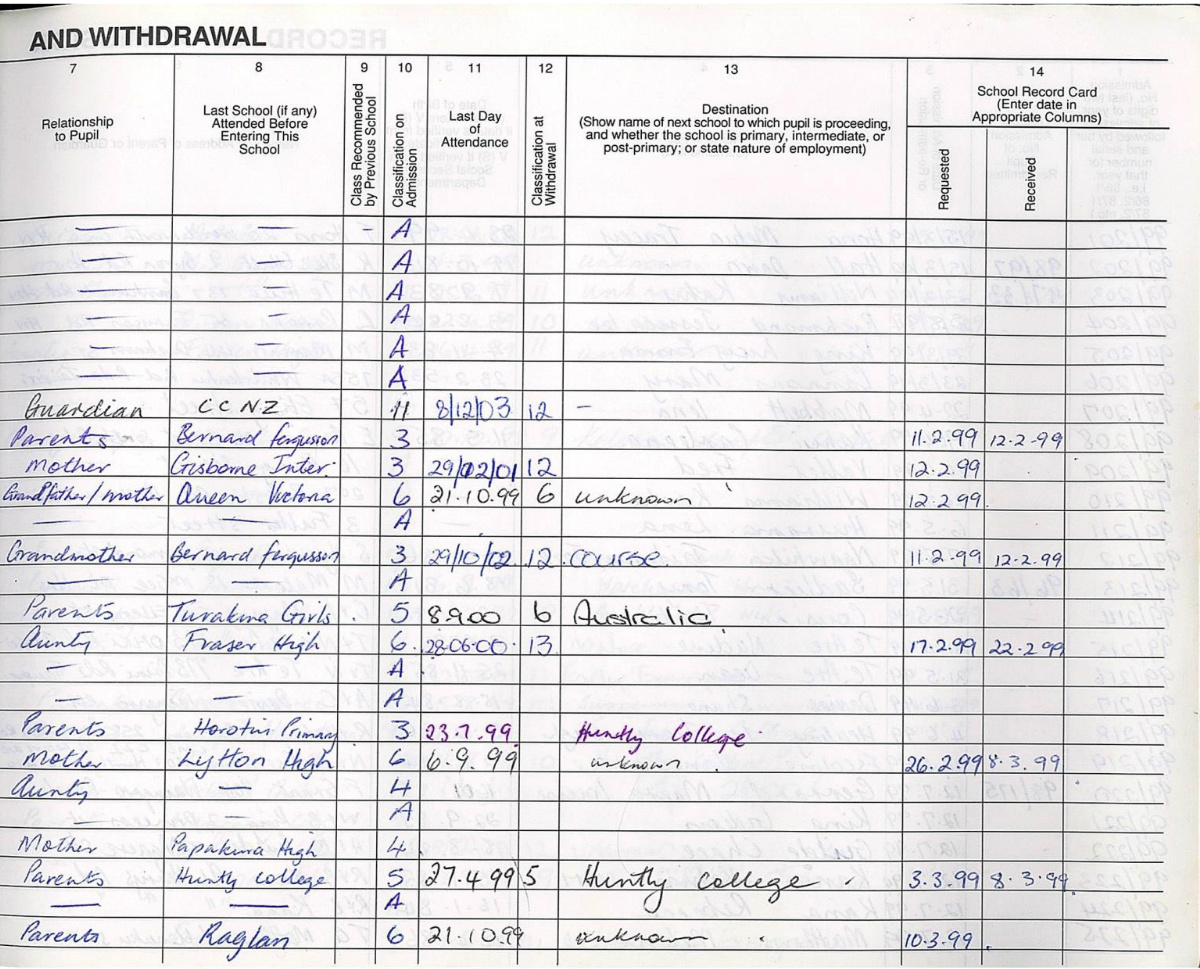 AND WITHDRAWAL
7 8 9 10 11 12 13 14
Relationship to Pupil
Last School (if any) Attended Before Entering This School
Class Recommended by Previous School
Classification on Admission
Last Day of Attendance
Classification at Withdrawal
Destination
(Show name of next school to which pupil is proceeding, and whether the school is primary, intermediate, or post-primary; or state nature of employment)
School Record Card (Enter date in Appropriate Columns)
Requested
Received
— — - A
— — A
— — A
— — A
— — A
— — A
Guardian CCNZ 11 8/12/03 12 -
Parents Bernard fergusson 3 11.2.99 12.2-99
Mother Gisborne Inter 3 29/02/01 12 12.2.99
Grandfather/mother Queen Victoria 6 21.10.99 6 unknown 12.2.99.
— — A —
Grandmother Bernard fergusson 3 29/10/02 12 course. 11.2.99 12.2.99
— — A
Parents Turakina Girls 5 8.9.00 6 Australia
Aunty Fraser High 6. 28-06-00 13 17.2.99 22.2.99
— — A
— — A
Parents Horotiu Primary 3 23.7.99 Huntly College
Mother Lytton High 6 6.9.99 unknown 26.2.99 8.3.99
Aunty — 4
A
Mother Papakura High 4
Parents Huntly college 5 27.4.99 5 Huntly college 3.3.99 8.3.99
— — A
Parents Raglan 6 21.10.99 unknown 10.3.99